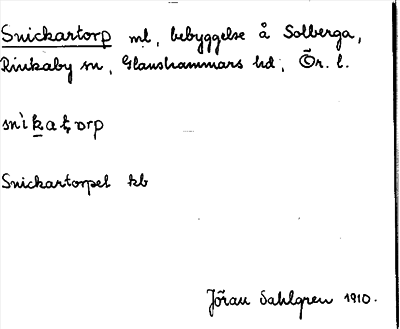 Snickartorp ml, bebyggelse å Solberga,
Rinkaby sn, Glanshammars hd, Ör. l.
snìkaʈorp
Snickartorpet kb
Jöran Sahlgren 1910.